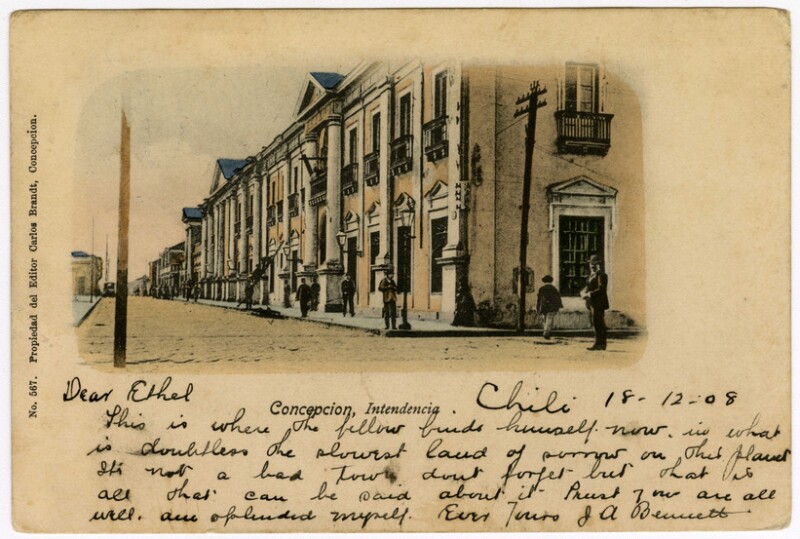 No. 567. Propiedad del Editor Carlos Brandt, Concepcion.
Dear Ethel
Concepcion, Intendencia. Chili 18-12-08
This is where the fellow finds himself now. in what
is doubtless the slowest land of sorrow on this planet
It's not a bad town dont forget but that is
all that can be said about it Trust you are all
well. am splendid myself. Ever Yours J A Bennett